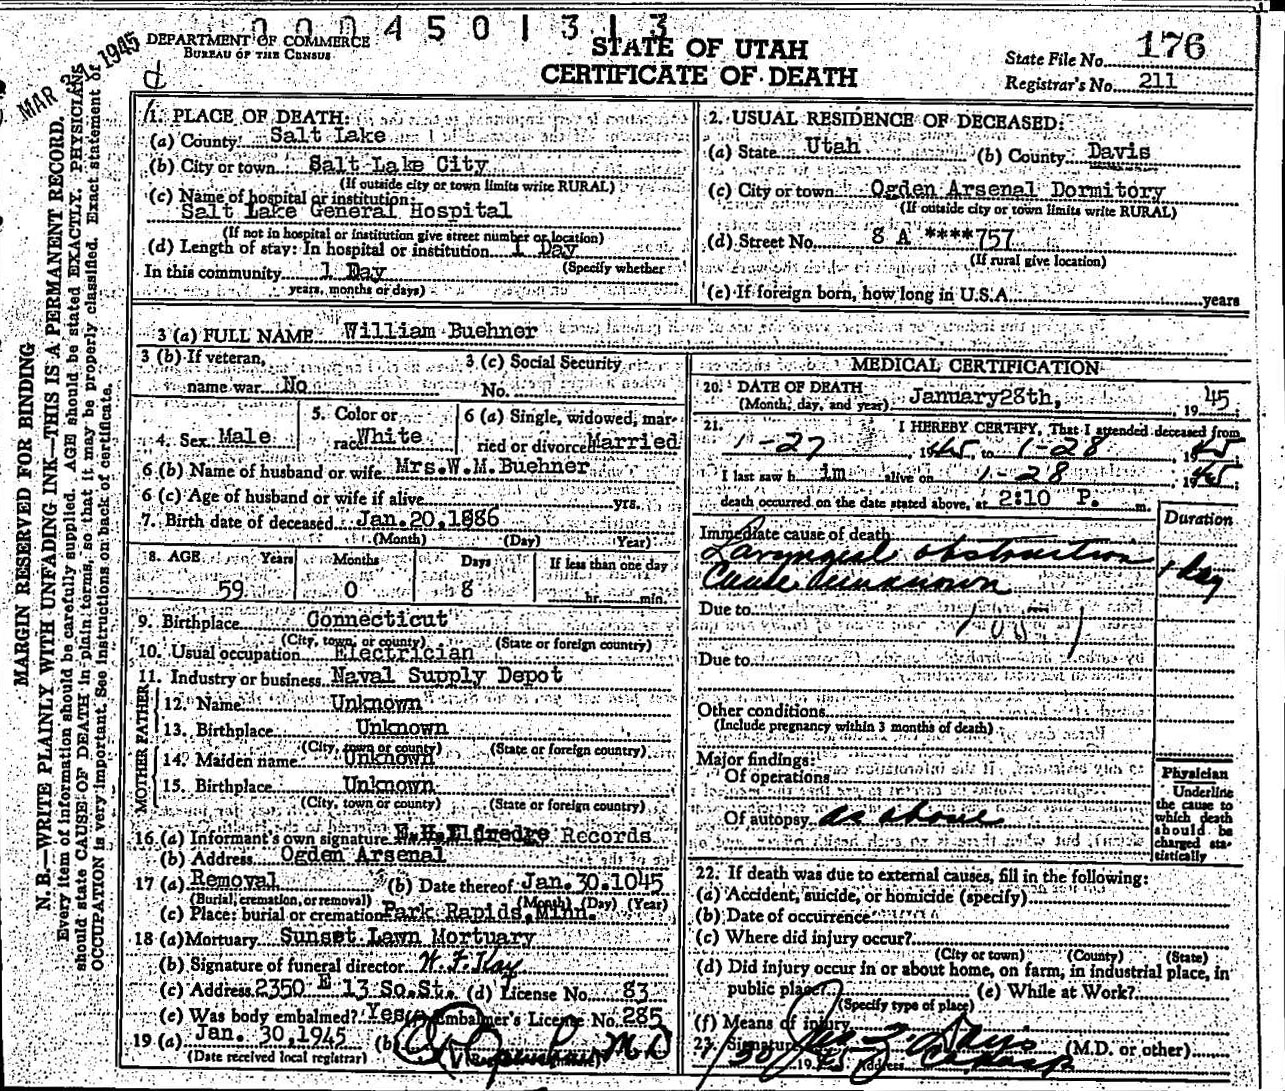 0004501313
MAR 2 1945
DEPARTMENT OF COMMERCE
BUREAU OF THE CENSUS
STATE OF UTAH
CERTIFICATE OF DEATH
State File No. 176
Registrar's No. 211
MARGIN RESERVED FOR BINDING
N. B.—WRITE PLAINLY WITH UNFADING INK—THIS IS A PERMANENT RECORD.
Every item of information should be carefully supplied. AGE should be stated EXACTLY. PHYSICIANS
should state CAUSE OF DEATH in plain terms, so that it may be properly classified. Exact statement of
OCCUPATION is very important. See instructions on back of certificate.
1. PLACE OF DEATH:
(a) County Salt Lake
(b) City or town Salt Lake City
(If outside city or town limits write RURAL)
(c) Name of hospital or institution:
Salt Lake General Hospital
(If not in hospital or institution give street number or location)
(d) Length of stay: In hospital or institution 1 Day
(Specify whether
In this community 1 Day
years, months or days)
2. USUAL RESIDENCE OF DECEASED:
(a) State Utah (b) County Davis
(c) City or town Ogden Arsenal Dormitory
(If outside city or town limits write RURAL)
(d) Street No. 8 A ****757
(If rural give location)
(e) If foreign born, how long in U.S.A. years
3 (a) FULL NAME William Buehner
3 (b) If veteran, 3 (c) Social Security
name war No No.
4. Sex Male 5. Color or race White 6 (a) Single, widowed, married or divorced Married
6 (b) Name of husband or wife Mrs.W.M.Buehner
6 (c) Age of husband or wife if alive yrs.
7. Birth date of deceased Jan.20,1886
(Month) (Day) Year)
8. AGE Years Months Days If less than one day
59 0 8 hr. min.
9. Birthplace Connecticut
(City, town, or county) (State or foreign country)
10. Usual occupation Electrician
11. Industry or business Naval Supply Depot
FATHER
12. Name Unknown
13. Birthplace Unknown
(City, town or county) (State or foreign country)
MOTHER
14. Maiden name Unknown
15. Birthplace Unknown
(City, town or county) (State or foreign country)
16 (a) Informant's own signature E.H.Eldredge Records
(b) Address Ogden Arsenal
17 (a) Removal (b) Date thereof Jan.30.1045
(Burial, cremation, or removal) (Month) (Day) (Year)
(c) Place: burial or cremation Park Rapids, Minn.
18 (a) Mortuary Sunset Lawn Mortuary
(b) Signature of funeral director
(c) Address 2350 E 13 So.St. (d) License No. 83
(e) Was body embalmed? Yes Embalmer's License No. 285
19 (a) Jan. 30,1945 (b) M.D
(Date received local registrar)
MEDICAL CERTIFICATION
20. DATE OF DEATH
(Month, day, and year) January28th, 1945;
21. I HEREBY CERTIFY, That I attended deceased from
1-27, 1945, to 1-28, 1945
I last saw him alive on 1-28 1945;
death occurred on the date stated above, at 2:10 P. m.
Duration
Immediate cause of death
Laryngeal obstruction 1 day
Cause unknown
Due to
Due to
Other conditions
(Include pregnancy within 3 months of death)
Major findings:
Of operations
Of autopsy as above
Physician
Underline
the cause to
which death
should be
charged sta-
tistically
22. If death was due to external causes, fill in the following:
(a) Accident, suicide, or homicide (specify)
(b) Date of occurrence
(c) Where did injury occur?
(City or town) (County) (State)
(d) Did injury occur in or about home, on farm, in industrial place, in
public place? (e) While at Work?
(Specify type of place)
(f) Means of injury
23. Signature (M.D. or other)
1/30 1945 Address